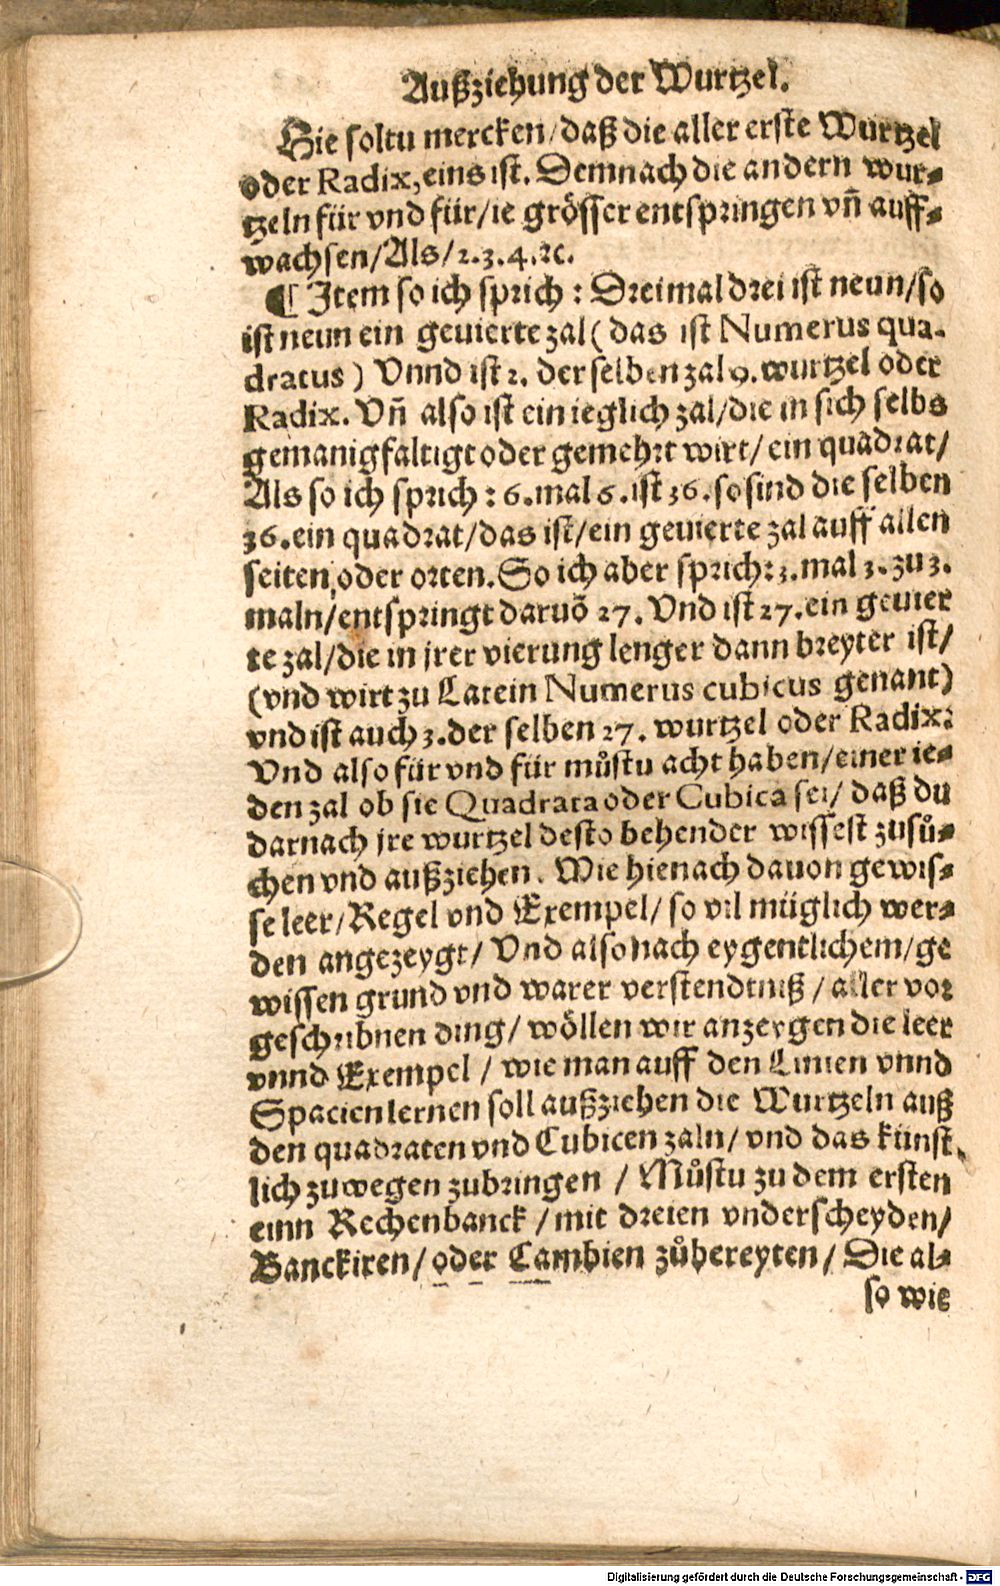 Außziehung der Wurtzel.
Hie soltu mercken/daß die aller erste Wurtzel
oder Radix, eins ist. Demnach die andern wur-
tzeln für vnd für/ie grösser entspringen vñ auff-
wachsen/Als/2.3.4.ꝛc.
¶ Item so ich sprich: Dreimal drei ist neun/so
ist neun ein gevierte zal (das ist Numerus qua-
dratus) Vnnd ist 2. der selben zal 9. wurtzel oder
Radix. Vñ also ist ein ieglich zal/die in sich selbs
gemanigfaltigt oder gemehrt wirt/ ein quadrat/
Als so ich sprich: 6. mal 6. ist 36. so sind die selben
36. ein quadrat/das ist/ein gevierte zal auff allen
seiten, oder orten. So ich aber sprich: 3. mal 3. zu 3.
maln/entspringt daruõ 27. Vnd ist 27. ein gevier
te zal/die in jrer vierung lenger dann breyter ist/
(vnd wirt zu Latein Numerus cubicus genant)
vnd ist auch 3. der selben 27. wurtzel oder Radix:
Vnd also für vnd für můstu acht haben/einer ie-
den zal ob sie Quadrata oder Cubica sei/ daß du
darnach jre wurtzel desto behender wissest zusů-
chen vnd außziehen. Wie hienach davon gewis-
se leer/Regel vnd Exempel/ so vil müglich wer-
den angezeygt/ Vnd also nach eygentlichem/ge
wissen grund vnd warer verstendtniß / aller vor
geschribnen ding/ wöllen wir anzeygen die leer
vnnd Exempel / wie man auff den Linien vnnd
Spacien lernen soll außziehen die Wurtzeln auß
den quadraten vnd Cubicen zaln/ vnd das künst
lich zuwegen zubringen / Můstu zu dem ersten
einn Rechenbanck /mit dreien vnderscheyden/
Banckiren/ oder Cambien zůbereyten/ Die al-
so wie
Digitalisierung gefördert durch die Deutsche Forschungsgemeinschaft - DFG